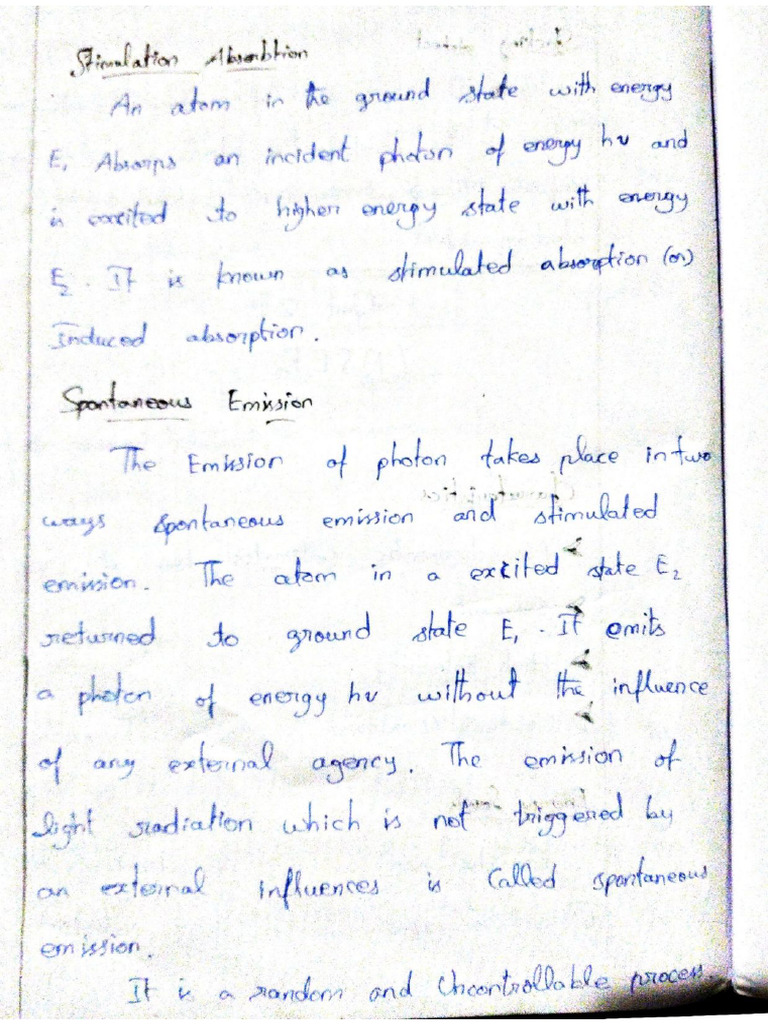 Stimulation Absorbtion
An atom in the ground state with energy
E₁ Absorps an incident photon of energy hν and
is excited to higher energy state with energy
E₂. It is known as stimulated absorption (or)
Induced absorption.
Spontaneous Emission
The Emission of photon takes place in two
ways spontaneous emission and stimulated
emission. The atom in a excited state E₂
returned to ground state E₁. It emits
a photon of energy hν without the influence
of any external agency. The emission of
light radiation which is not triggered by
an external influences is Called spontaneous
emission.
It is a random and Uncontrollable process.